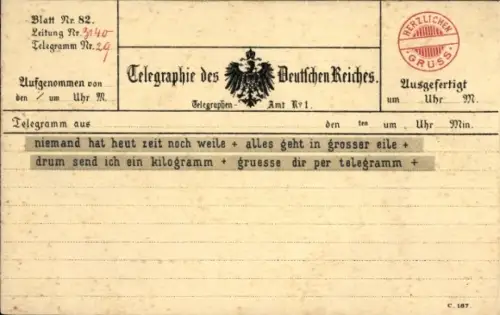 Blatt Nr. 82.
Leitung Nr. 3040
Telegramm Nr. 29
HERZLICHEN
GRUSS.
Telegraphie des Deutschen Reiches.
Aufgenommen von
den / um Uhr M.
Telegraphen-Amt No 1.
Ausgefertigt
um Uhr M.
Telegramm aus den ten um Uhr Min.
niemand hat heut zeit noch weile + alles geht in grosser eile +
drum send ich ein kilogramm + gruesse dir per telegramm +
C. 187.